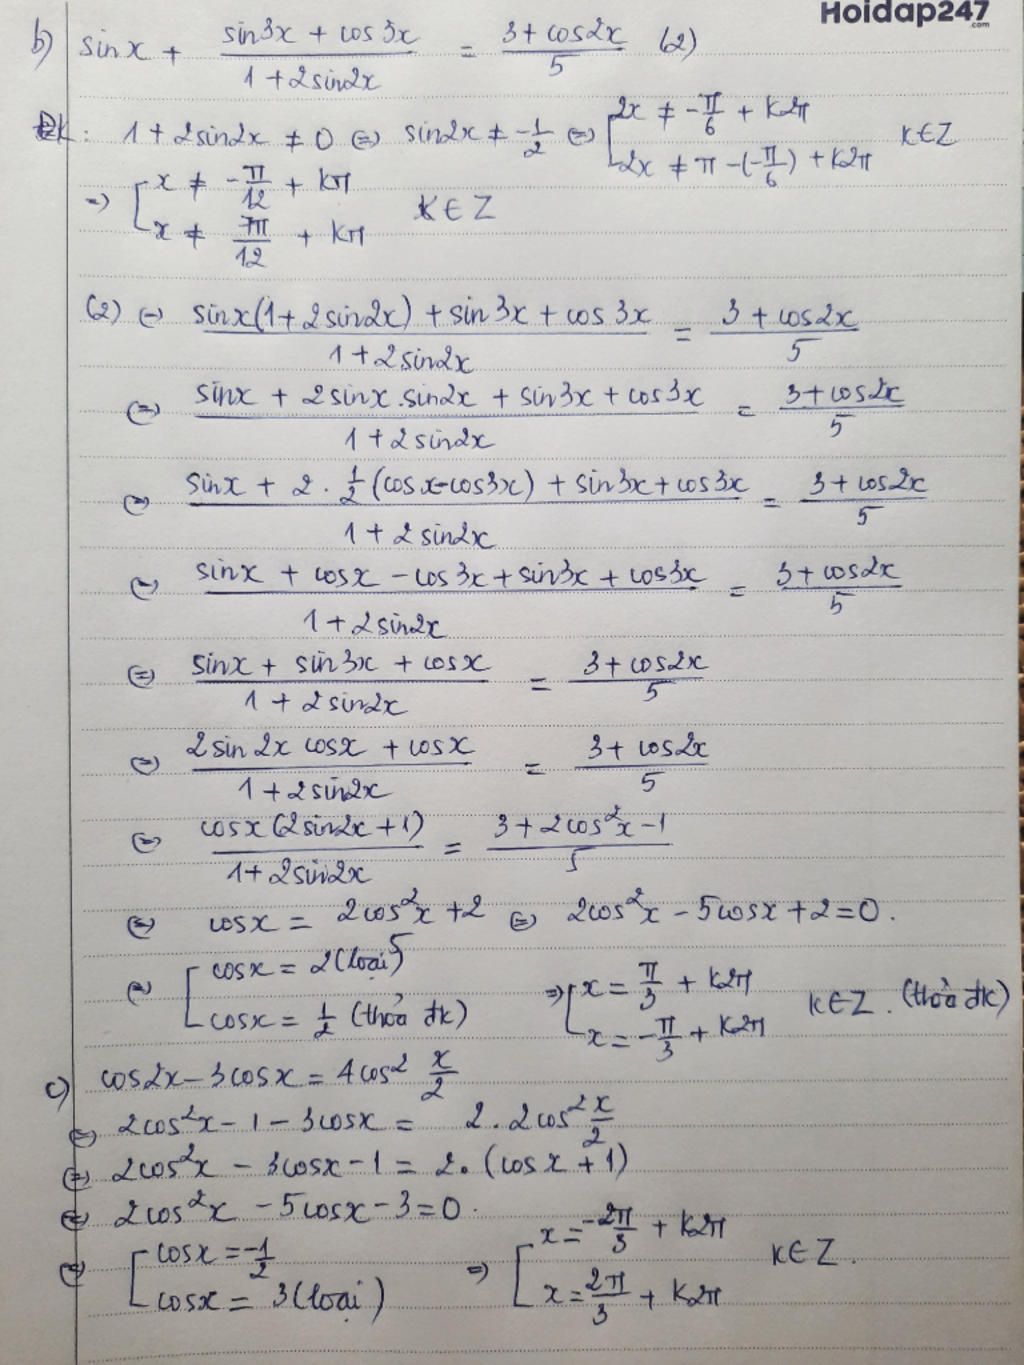 Hoidap247
.com
b) sinx + (sin3x + cos3x)/(1 + 2sin2x) = (3 + cos2x)/5 (2)
ĐK: 1 + 2sin2x ≠ 0 ⇔ sin2x ≠ -1/2 ⇔ [ 2x ≠ -π/6 + k2π
2x ≠ π - (-π/6) + k2π k∈Z
⇒ [ x ≠ -π/12 + kπ
x ≠ 7π/12 + kπ k∈Z
(2) ⇔ (sinx(1+2sin2x) + sin3x + cos3x)/(1 + 2sin2x) = (3 + cos2x)/5
⇔ (sinx + 2sinx.sin2x + sin3x + cos3x)/(1 + 2sin2x) = (3 + cos2x)/5
⇔ (sinx + 2 . 1/2 (cosx-cos3x) + sin3x + cos3x)/(1 + 2sin2x) = (3 + cos2x)/5
⇔ (sinx + cosx - cos3x + sin3x + cos3x)/(1 + 2sin2x) = (3 + cos2x)/5
⇔ (sinx + sin3x + cosx)/(1 + 2sin2x) = (3 + cos2x)/5
⇔ (2sin2x cosx + cosx)/(1 + 2sin2x) = (3 + cos2x)/5
⇔ (cosx(2sin2x + 1))/(1 + 2sin2x) = (3 + 2cos²x - 1)/5
⇔ cosx = (2cos²x + 2)/5 ⇔ 2cos²x - 5cosx + 2 = 0.
⇔ [ cosx = 2 (loại)
cosx = 1/2 (thỏa đk) ⇒ [ x = π/3 + k2π
x = -π/3 + k2π k∈Z. (thỏa đk)
c) cos2x - 3cosx = 4cos² x/2
⇔ 2cos²x - 1 - 3cosx = 2.2cos² x/2
⇔ 2cos²x - 3cosx - 1 = 2.(cosx + 1)
⇔ 2cos²x - 5cosx - 3 = 0.
⇔ [ cosx = -1/2
cosx = 3 (loại) ⇒ [ x = -2π/3 + k2π
x = 2π/3 + k2π k∈Z.